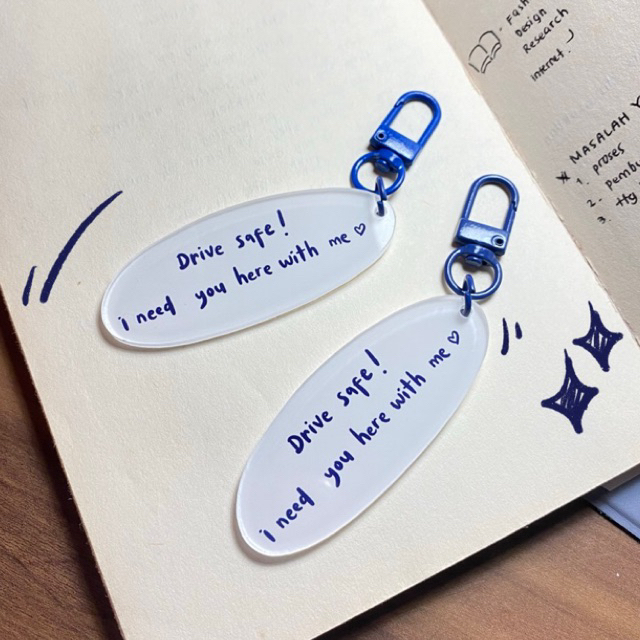 Drive safe!
i need you here with me ♡
Drive safe!
i need you here with me ♡
Design
Research
internet.
* MASALAH
1. proses
2.
3.